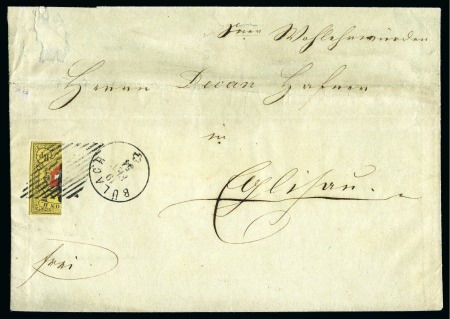 Seiner Wohlehrwürden
Herrn Decan Hafner
in
Eglisau.
BÜLACH
frei